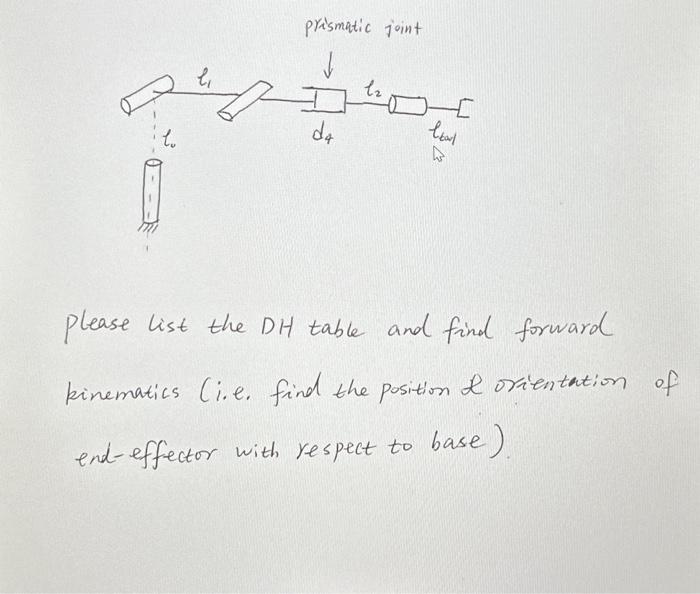 prismatic joint
l₁
l₂
l₀
d₄
l tool
please list the DH table and find forward
kinematics (i.e. find the position & orientation of
end-effector with respect to base).